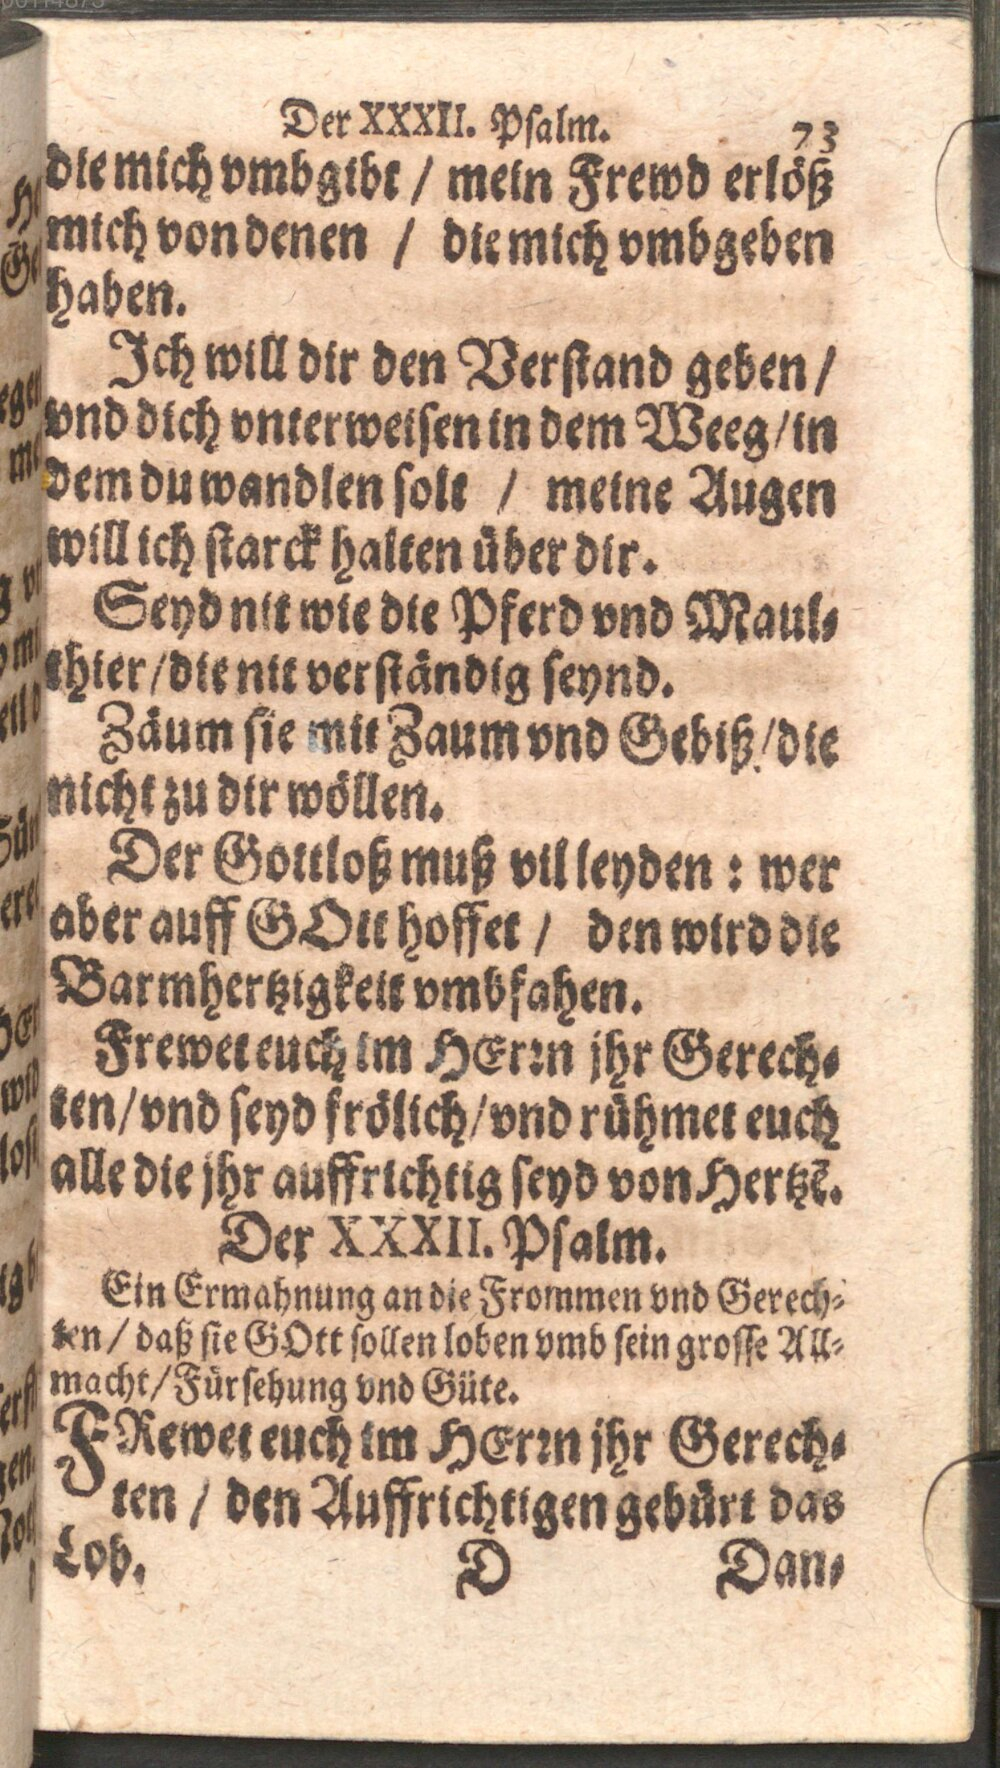 Der XXXII. Psalm. 73
die mich vmbgibt / mein Frewd erlöß
mich von denen / die mich vmbgeben
haben.
Ich will dir den Verstand geben /
vnd dich vnterweisen in dem Weeg / in
dem du wandlen solt / meine Augen
will ich starck halten über dir.
Seyd nit wie die Pferd vnd Maul-
thier / die nit verständig seynd.
Zäum sie mit Zaum vnd Gebiß / die
nicht zu dir wöllen.
Der Gottloß muß vil leyden : wer
aber auff GOtt hoffet / den wird die
Barmhertzigkeit vmbfahen.
Frewet euch im HErrn jhr Gerech-
ten / vnd seyd frölich / vnd rühmet euch
alle die jhr auffrichtig seyd von Hertzē.
Der XXXII. Psalm.
Ein Ermahnung an die Frommen vnd Gerech-
ten / daß sie GOtt sollen loben vmb sein grosse All-
macht / Fürsehung vnd Güte.
FRewet euch im HErrn jhr Gerech-
ten / den Auffrichtigen gebürt das
Lob. D Dan-